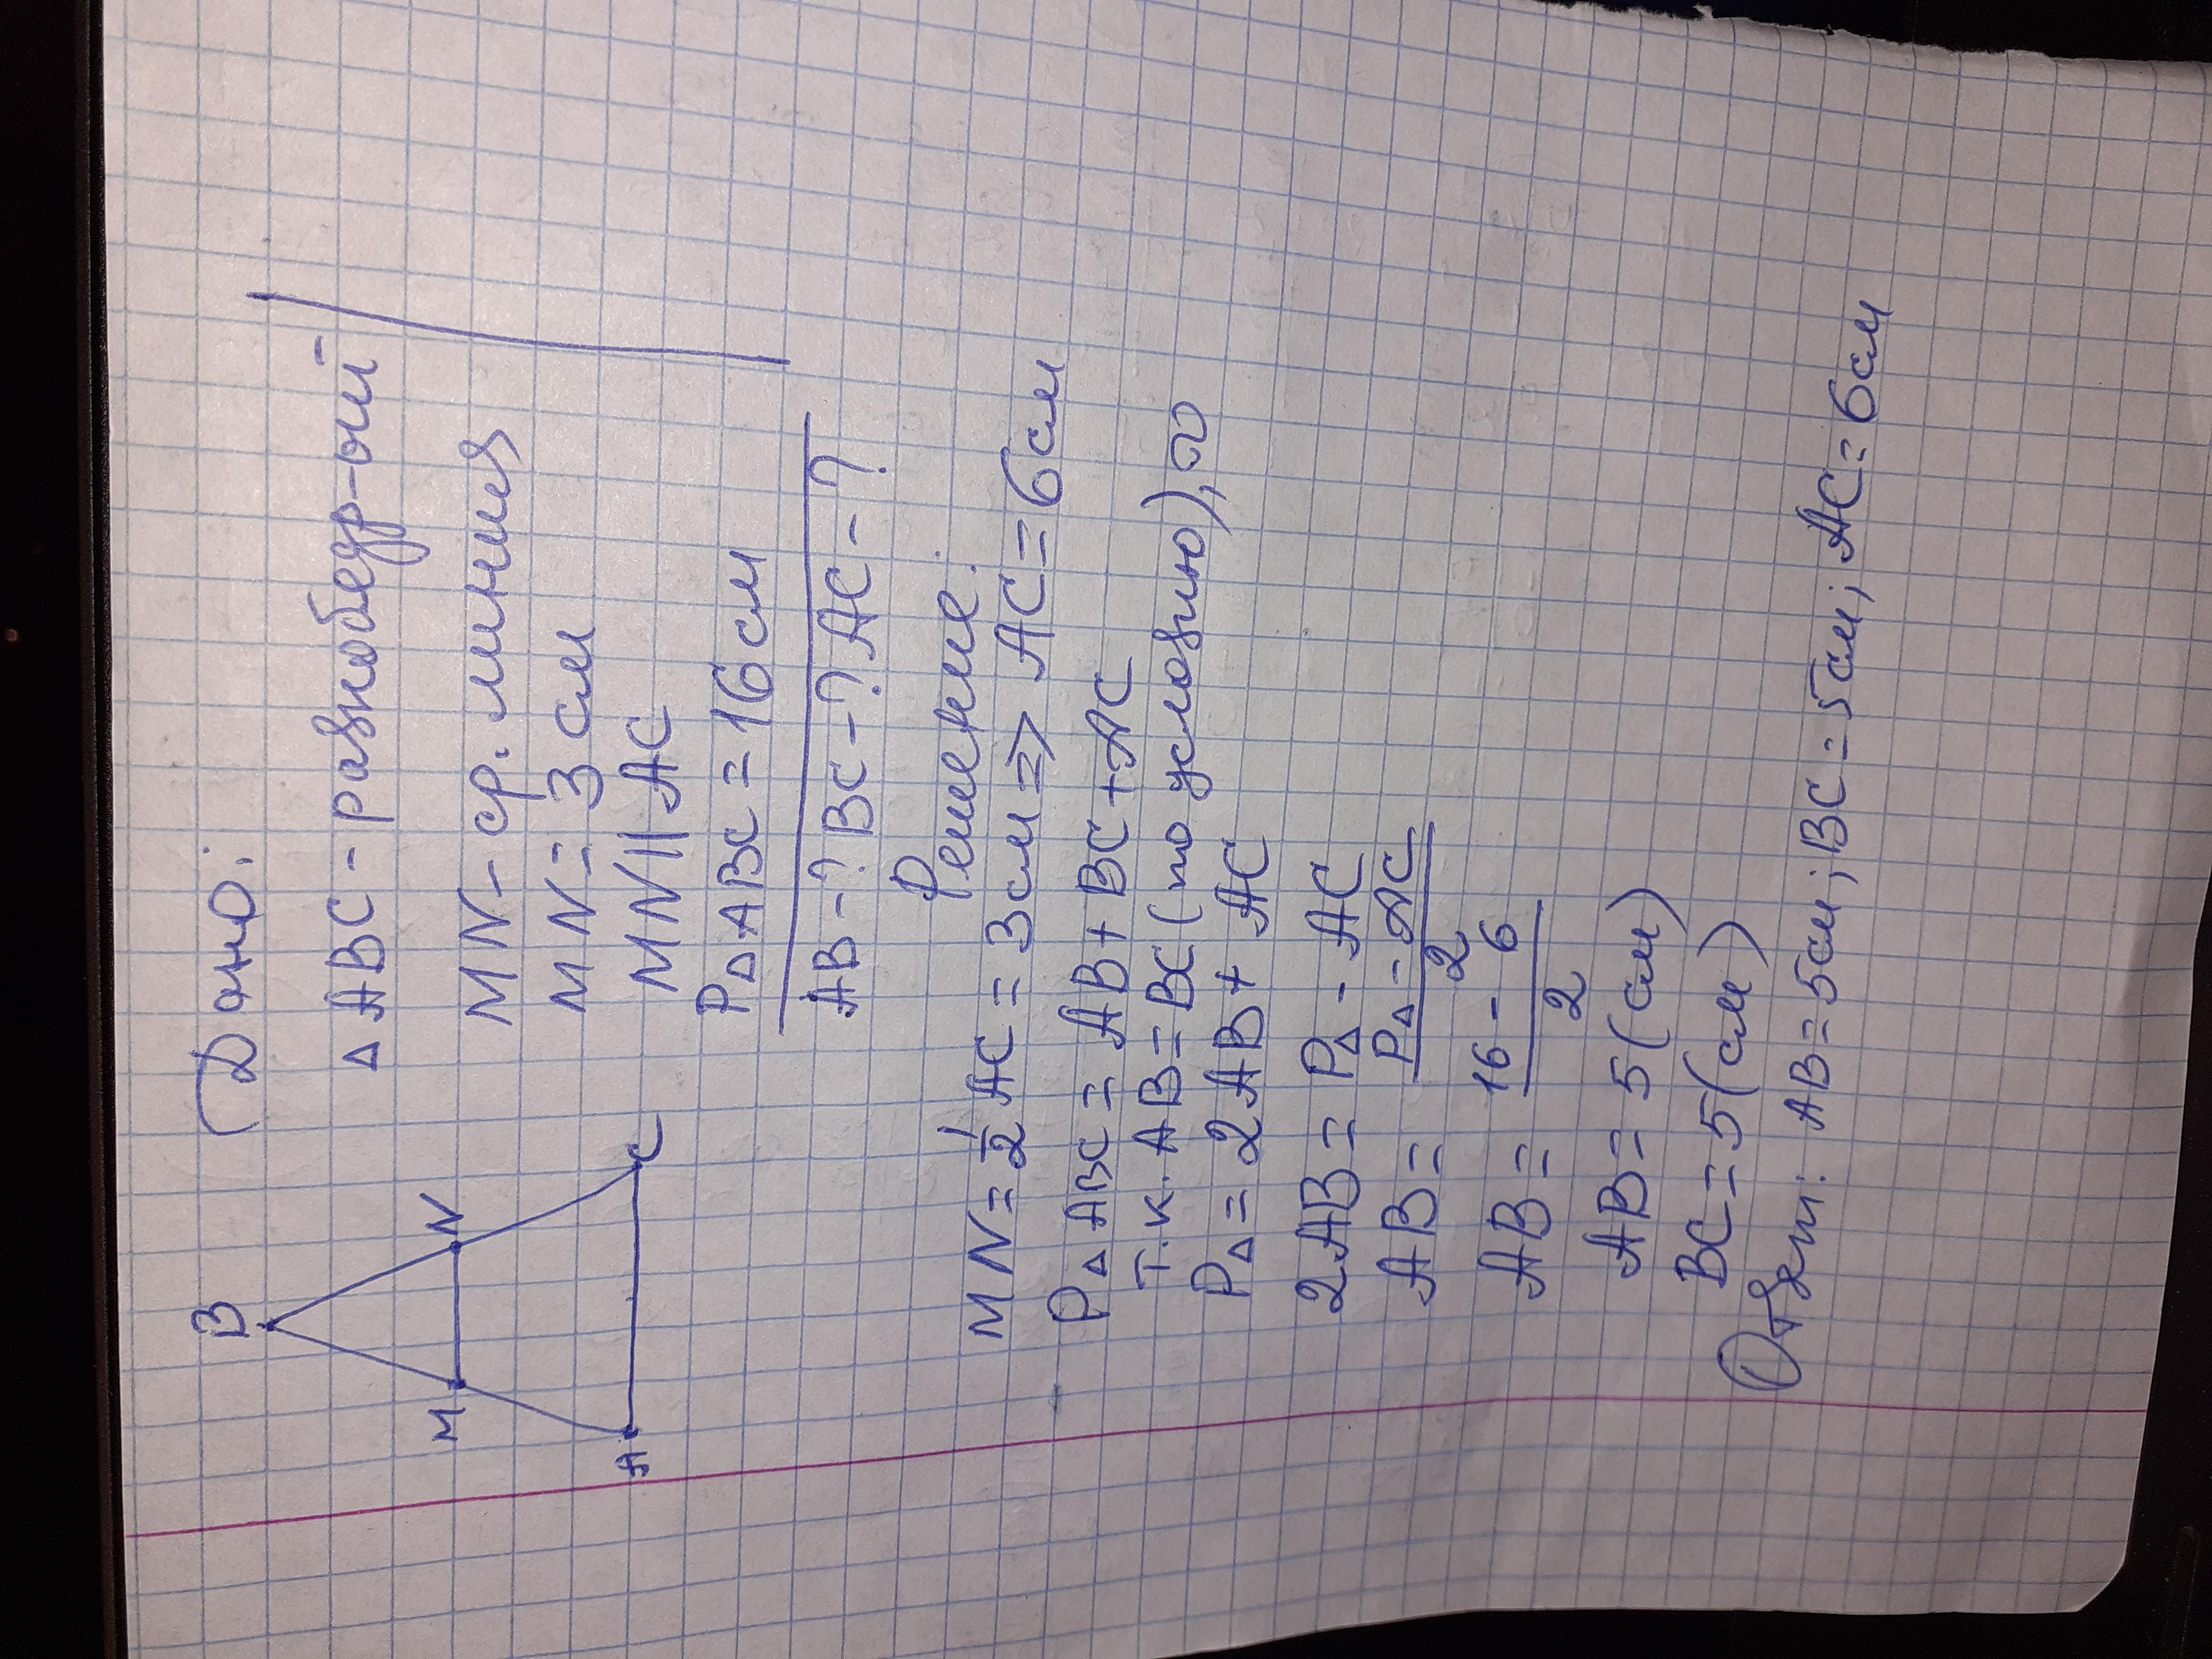 B
M
N
A
C
Дано:
△ABC - равнобедр-ый
MN - ср. линия
MN = 3 см
MN || AC
P△ABC = 16 см
AB - ? BC - ? AC - ?
Решение.
MN = 1/2 AC = 3см => AC = 6см
P△ABC = AB + BC + AC
т.к. AB = BC (по условию), то
P△ = 2AB + AC
2AB = P△ - AC
AB = (P△ - AC)/2
AB = (16 - 6)/2
AB = 5 (см)
BC = 5 (см)
Ответ: AB = 5см; BC = 5см; AC = 6см